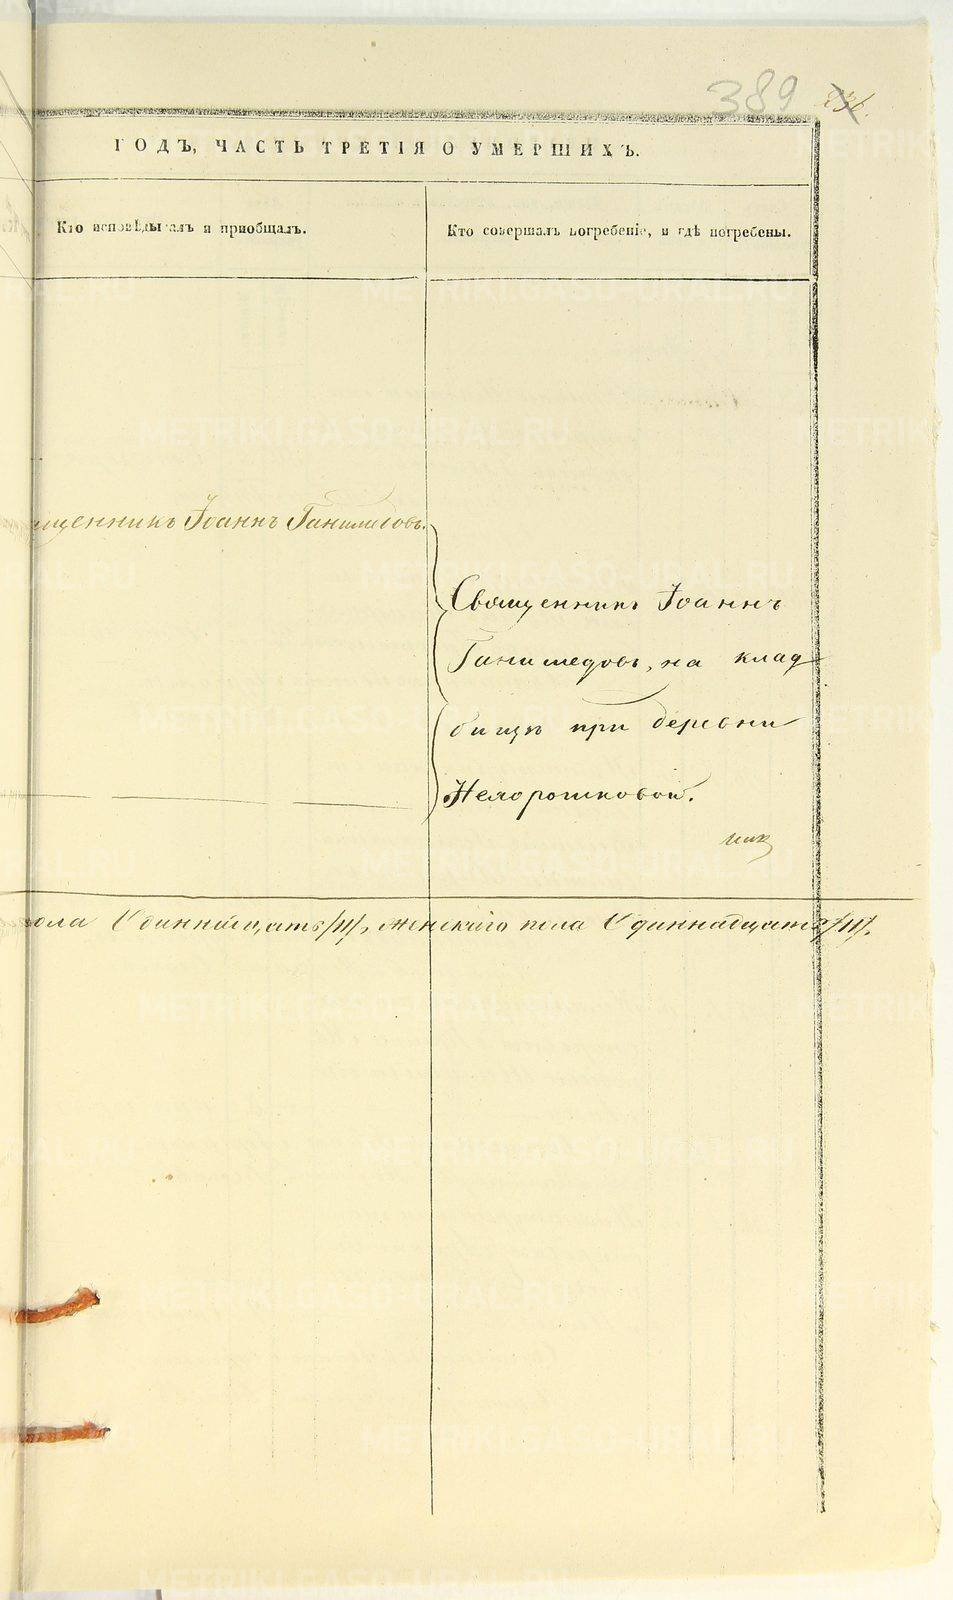 389
ГОДЪ, ЧАСТЬ ТРЕТІЯ О УМЕРШИХЪ.
Кто исповѣдывалъ и пріобщалъ.
Кто совершалъ погребеніе, и гдѣ погребены.
щенникъ Іоаннъ Ганимедовъ.
Священникъ Іоаннъ
Ганимедовъ, на клад
бищѣ при деревни
Нехорошковой.
пола Одиннадцать /11/, женскаго пола Одиннадцать /11/.
METRIKI.GASO-URAL.RU